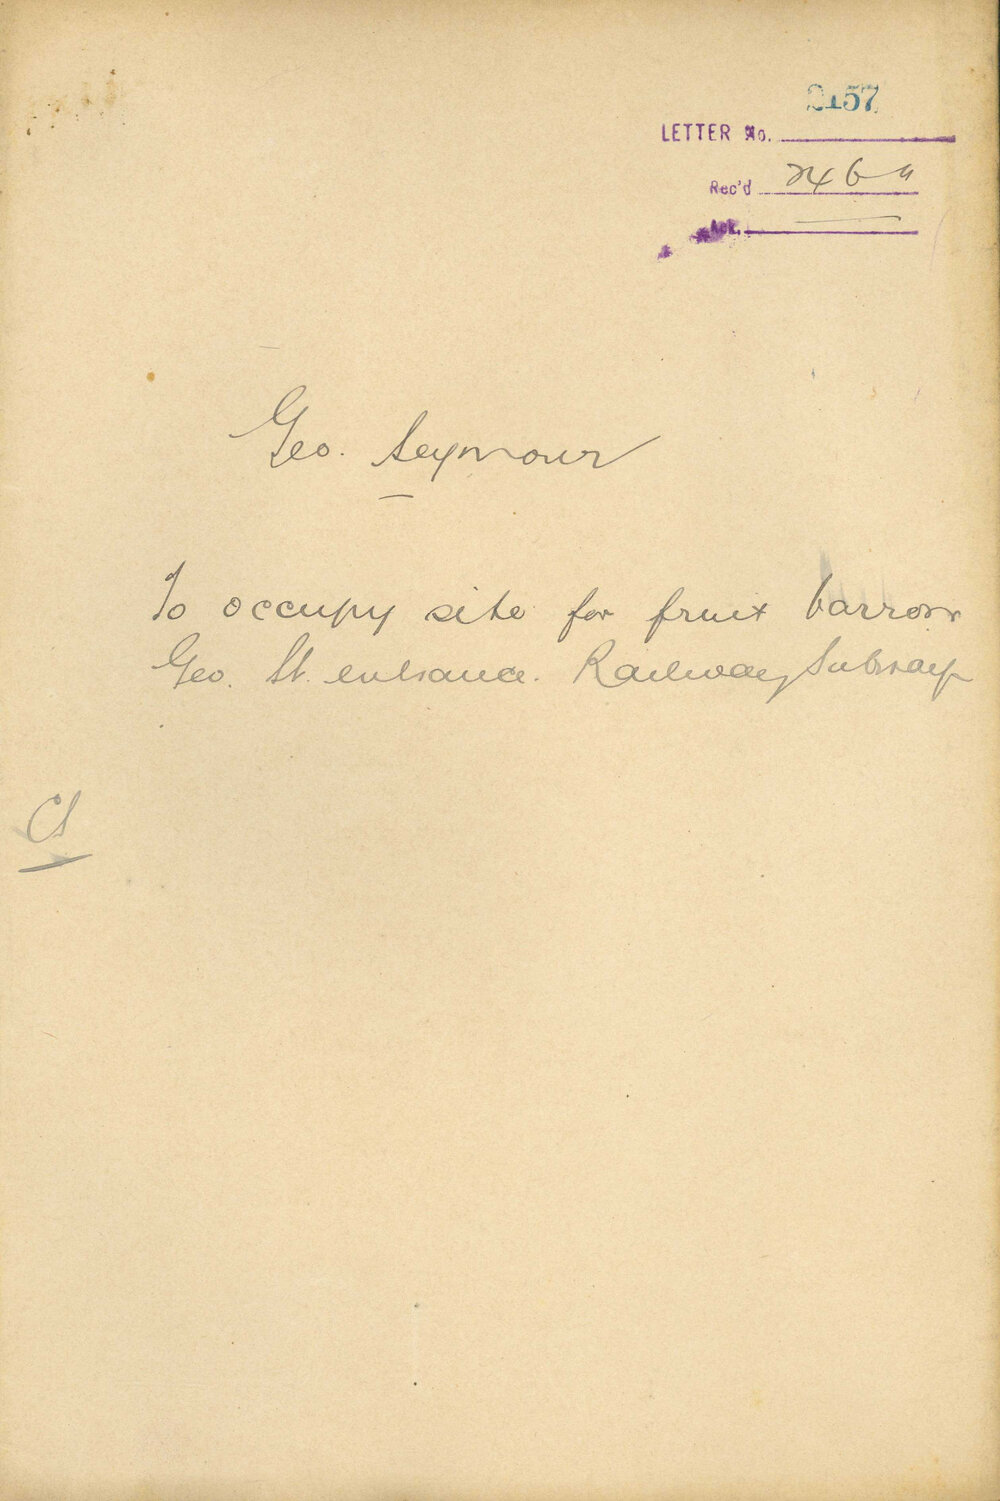 2157
LETTER No.
Rec'd 24 6
Ack.
Geo. Seymour
To occupy site for fruit barrow
Geo. St. entrance. Railway Subway